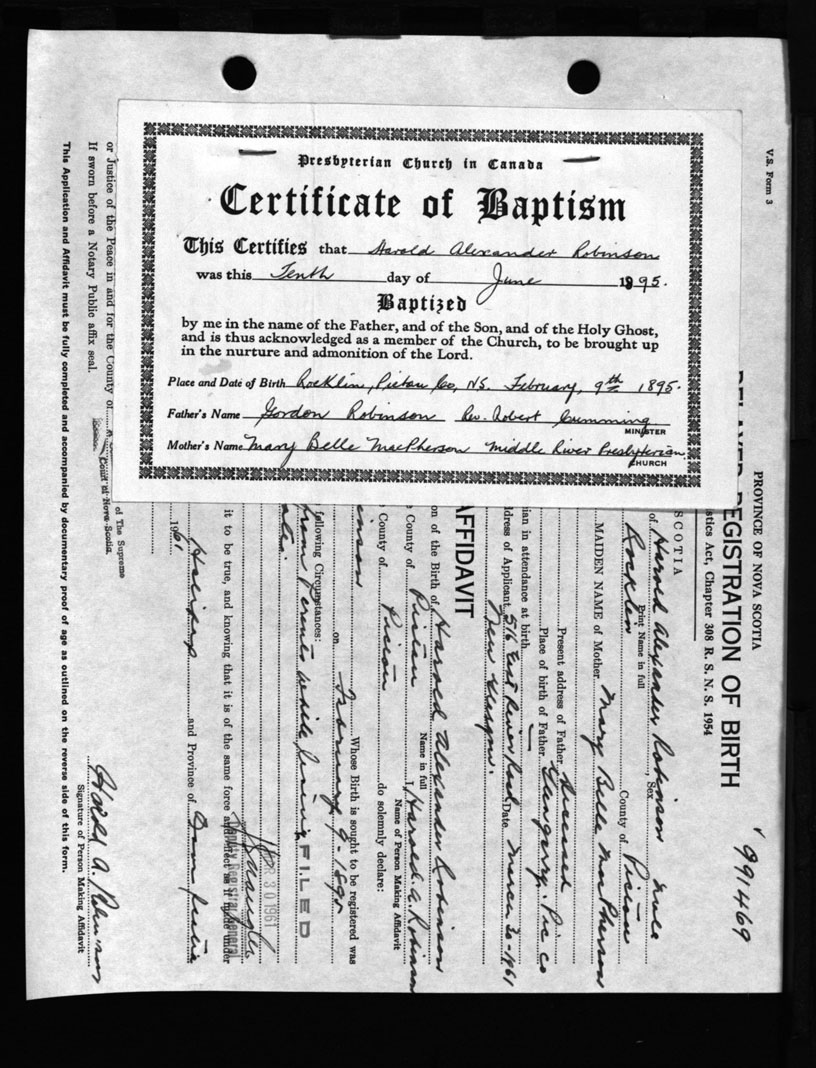 Presbyterian Church in Canada
Certificate of Baptism
This Certifies that Harold Alexander Robinson
was this Tenth day of June 1895.
Baptized
by me in the name of the Father, and of the Son, and of the Holy Ghost,
and is thus acknowledged as a member of the Church, to be brought up
in the nurture and admonition of the Lord.
Place and Date of Birth Rocklin, Pictou Co, NS. February, 9th 1895.
Father's Name Gordon Robinson Rev. Robert Cumming
MINISTER
Mother's Name Mary Belle MacPherson Middle River Presbyterian
CHURCH
V.S. Form 3
991469
PROVINCE OF NOVA SCOTIA
DELAYED REGISTRATION OF BIRTH
stics Act, Chapter 308 R. S. N. S. 1954
SCOTIA
of Harold Alexander Robinson Sex Male
Print Name in full
Rocklin County of Pictou
MAIDEN NAME of Mother Mary Belle MacPherson
Present address of Father Deceased
Place of birth of Father Glengarry, Pic Co
ian in attendance at birth
dress of Applicant 516 East River Road Date March 20-1961
New Glasgow.
AFFIDAVIT
on of the Birth of Harold Alexander Robinson
Name in full
e County of Pictou I, Harold A. Robinson
Name of Person Making Affidavit
County of Pictou do solemnly declare:
inson Whose Birth is sought to be registered was
on February 9-1895
following Circumstances:
from Parents while living
FILED
MAR 30 1961
Deputy Registrar General
it to be true, and knowing that it is of the same force and effect as if made under
Halifax and Province of Nova Scotia
1961
of The Supreme
Court of Nova Scotia
or Justice of the Peace in and for the County of
If sworn before a Notary Public affix seal.
Harold A. Robinson
Signature of Person Making Affidavit
This Application and Affidavit must be fully completed and accompanied by documentary proof of age as outlined on the reverse side of this form.